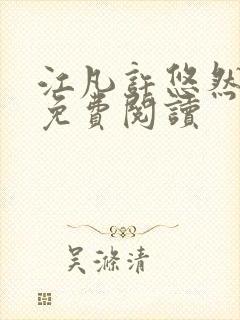 江凡許悠然
免費閱讀
吴滌清